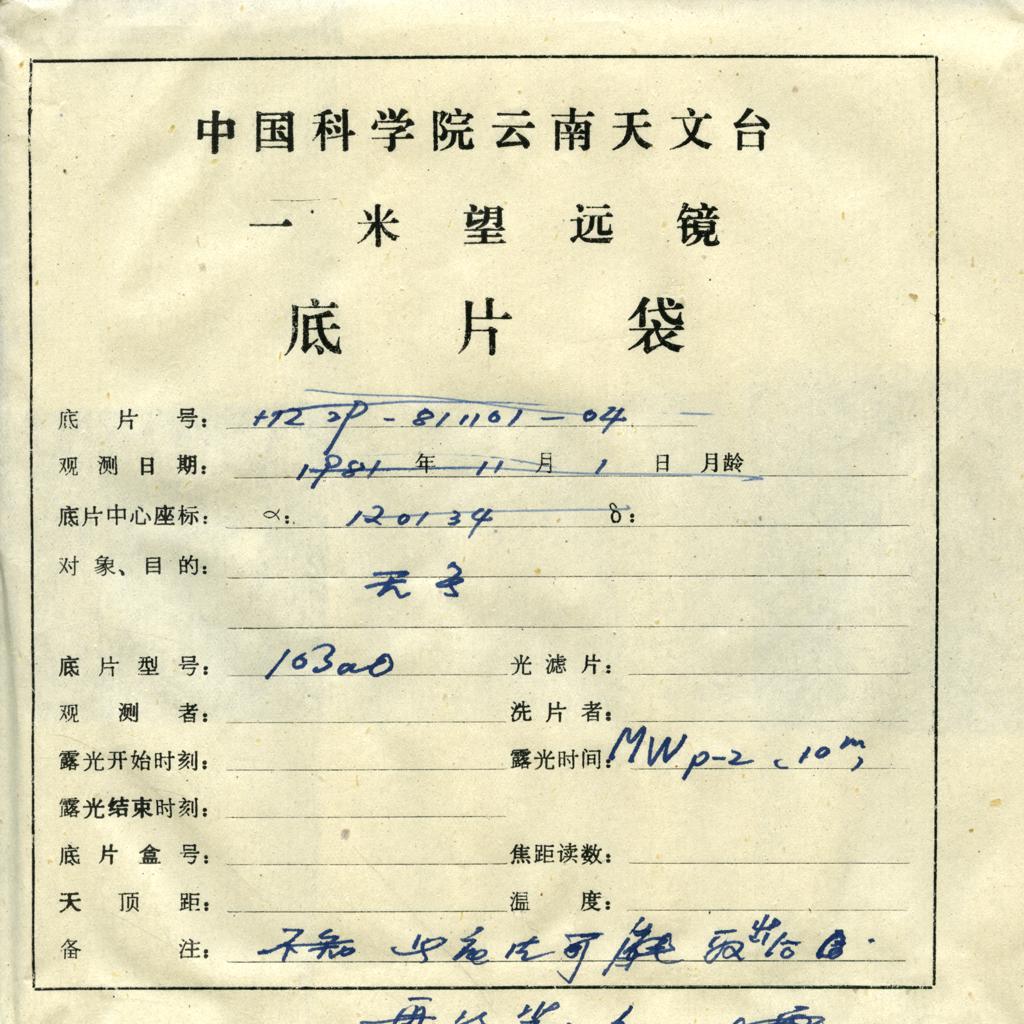 中国科学院云南天文台
一米望远镜
底片袋
底片号: -811101-04
观测日期: 1981年11月1日 月龄
底片中心座标: α: 120134 δ:
对象、目的:
底片型号: 103aO 光滤片:
观测者: 洗片者:
露光开始时刻: 露光时间: MWP-2 10m
露光结束时刻:
底片盒号: 焦距读数:
天顶距: 温度:
备注: 不知 可能